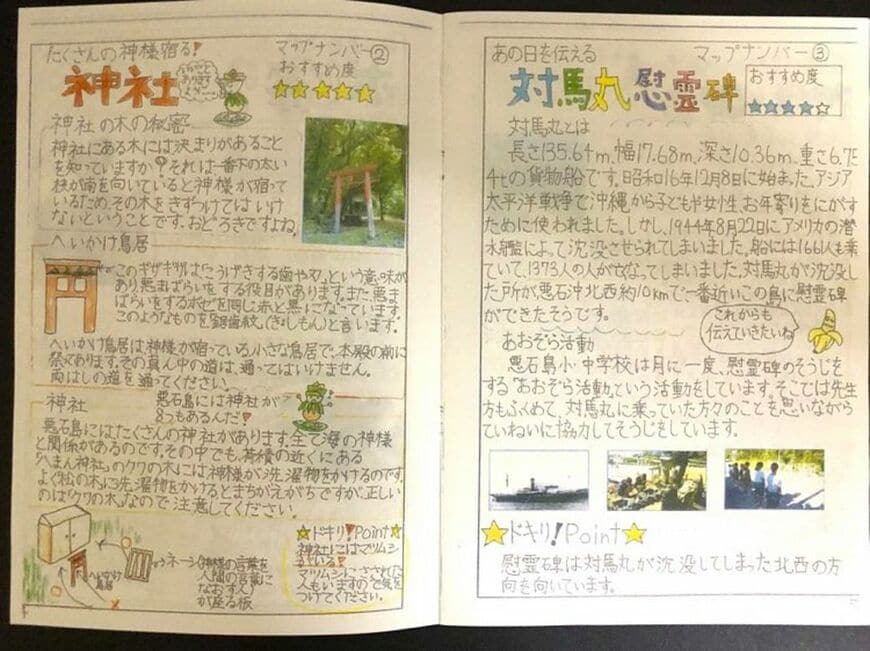 たくさんの神様宿る!
マップナンバー②
おすすめ度
神社
神社の木の秘密
神社にある木には決まりがあること
を知っていますか?それは一番下の太い
枝が南を向いていると神様が宿って
いるため、その木をきずつけてはいけ
ないということです。おどろきですよね。
へいかけ鳥居
このギザギザは「こうげきする歯や刃」という意味が
あり、悪まばらいをする役目があります。また、悪ま
ばらいをするボゼを同じ赤と黒になっています。
このようなものを鋸歯紋(きょしもん)と言います。
へいかけ鳥居は神様が宿っている、小さな鳥居で、本殿の前に
祭ってあります。その真ん中の道は、通ってはいけません。
両はしの道を通ってください。
神社
悪石島には神社が
8つもあるんだ!
悪石島にはたくさんの神社があります。全て海の神様
と関係があるのです。その中でも、荷積の近くにある
「へまん神社」のクワの木には神様が洗濯物をかけるのです。
よく「松の木」に洗濯物をかけるとまちがえがちですが、正しい
のは「クワの木」なので注意してください。
へいかけ
鳥居
ネーシ(神様の言葉を
人間の言葉に
なおす人)
が座る板
ドキリ!Point
神社にはマツムシ
がいる!
マツムシにさされた
人もいますので気を
つけてください。
あの日を伝える
マップナンバー③
対馬丸慰霊碑
おすすめ度
対馬丸とは
長さ135.64m、幅17.68m、深さ10.36m、重さ6.75
4tの貨物船です。昭和16年12月8日に始まった、アジア
太平洋戦争で沖縄から子どもや女性、お年寄りをにがす
ために使われました。しかし、1944年8月22日にアメリカの潜
水艦によって沈没させられてしまいました。船には1661人も乗
ていて、1373人の人が亡なってしまいました。対馬丸が沈没し
た所が悪石沖北西約10kmで一番近いこの島に慰霊碑
ができたそうです。
これからも
伝えていきたいね
あおぞら活動
悪石島小・中学校は月に一度、慰霊碑のそうじを
する「あおぞら活動」という活動をしています。そこでは先生
方もふくめて、対馬丸に乗っていた方々のことを思いながら
ていねいに協力してそうじをしています。
ドキリ!Point
慰霊碑は対馬丸が沈没してしまった北西の方
向を向いています。